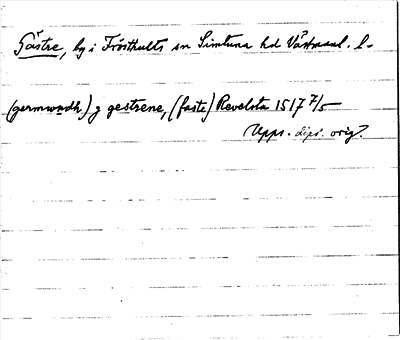 Gästre, by i Frösthults sn Simtuna hd Västmanl. l-
(germwndh) y gestrene, (faste) Revelsta 1517 7/5
Upps. dipl. orig.